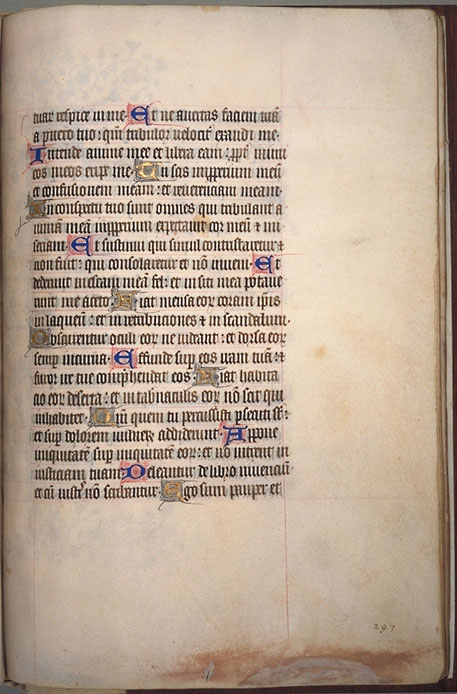 tuar respice in me. Et ne avertas faciem tuā
a puero tuo: qm̄ tribulor velocit̄ exaudi me.
Intende anime mee et libera eam: ppt̄ inimi
cos meos eripe me. Tu scis improperium meū
et confusionem meam: et reverenciam meam.
In conspectu tuo sunt omnes qui tribulant a
nimā meā improperium expectavit cor meū et mi
seriam. Et sustinui qui simul contristaretur et
non fuit: qui consolaretur et nō inveni. Et
dederunt in escam meā fel: et in siti mea potave
runt me aceto. Fiat mensa eor coram ipsis
in laqueū: et in retribuciones et in scandalum.
Obscurentur oculi eor ne videant: et dorsa eor
semp incurva. Effunde sup eos iram tuā: et
furor ire tue comprehendat eos. Fiat habita
cio eor deserta: et in tabernaculis eor nō sit qui
inhabitet. Qm̄ quem tu percussisti psecuti st̄:
et sup dolorem vulneꝝ addiderunt. Appone
iniquitatē sup iniquitatē eor: et nō intrent in
iusticiam tuam. Deleantur de libro vivenciū
et cū iustis nō scribantur. Ego sum pauper et
297